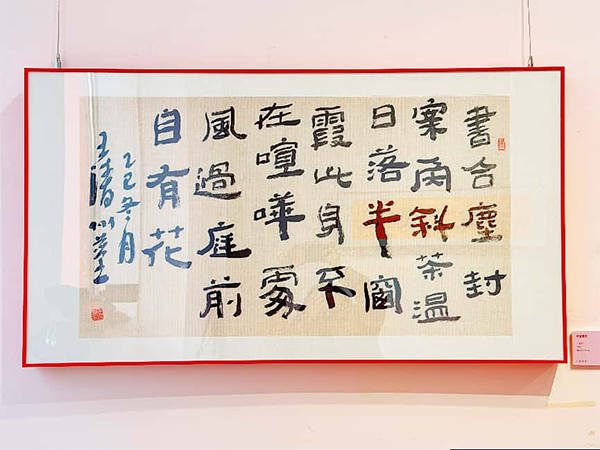 書合塵封
案角斜茶溫
日落半窗
霞此身不
在喧嘩處
風過庭前
自有花
乙巳冬月